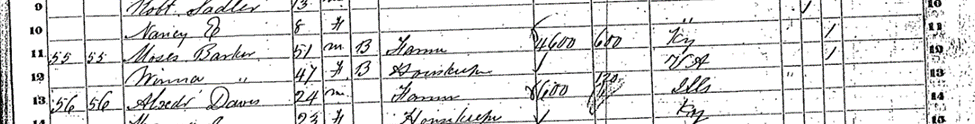 9 Robt. Sadler 13 m 10
10 Nancy E 8 F " 1 11
11 55 55 Moses Barker 51 m B Farmer 4600 600 Ky 1 12
12 " 47 F B Housekeeper VA " 13
13 56 56 Davis 24 m Farmer 600 120 Ills 14
23 F Housekeeper Ky